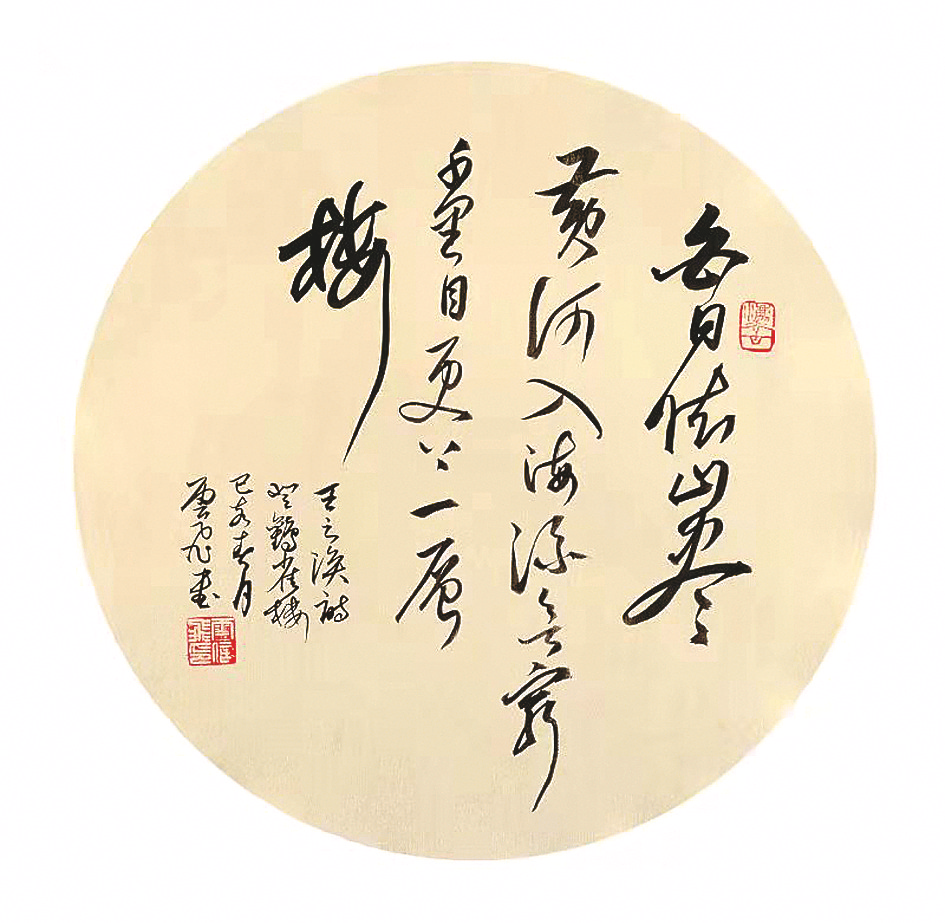 白日依山尽
黄河入海流欲穷
千里目更上一层
楼
王之涣诗
登鹳雀楼
己亥春月
雲飞书